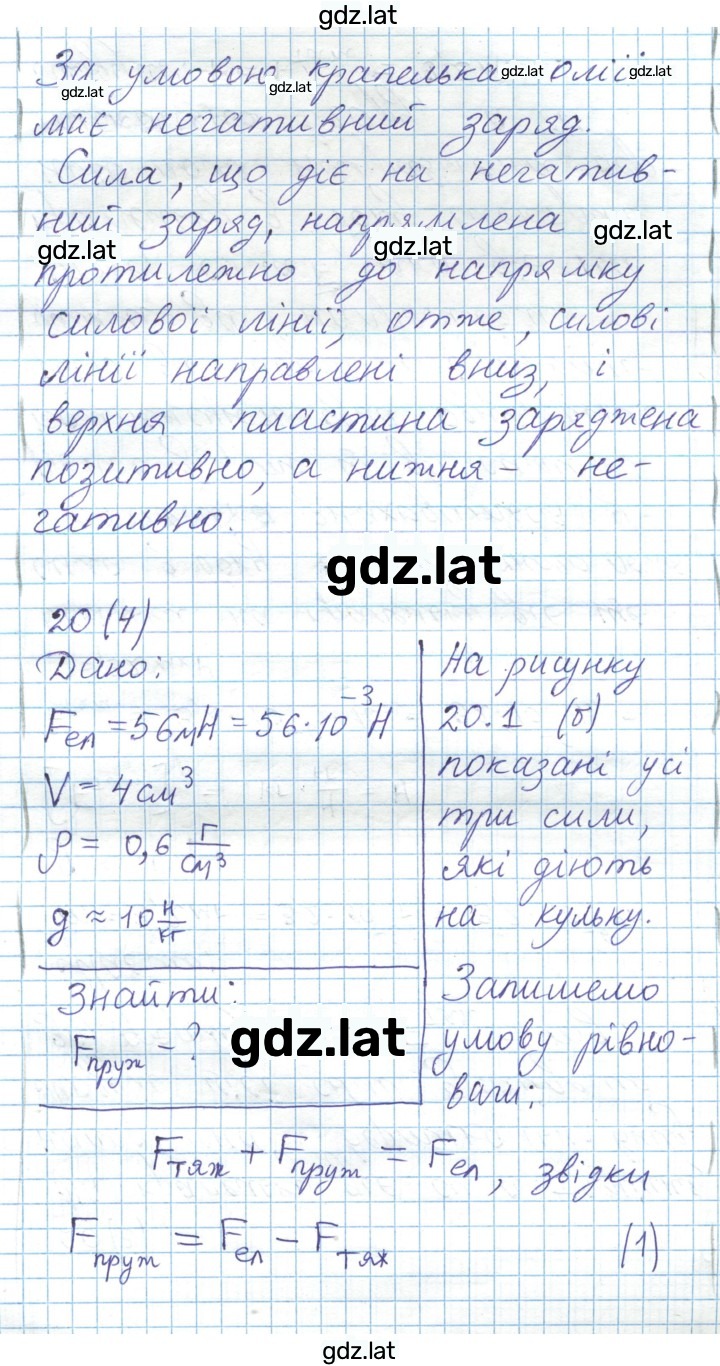 gdz.lat
За умовою крапелька олії
gdz.lat gdz.lat gdz.lat gdz.lat
має негативний заряд.
Сила, що діє на негатив-
ний заряд, напрямлена
gdz.lat gdz.lat gdz.lat
протилежно до напрямку
силової лінії, отже, силові
лінії направлені вниз, і
верхня пластина заряджена
позитивно, а нижня - не-
гативно.
gdz.lat
20 (4)
Дано:
Fел = 56мН = 56·10⁻³ Н
V = 4 см³
ρ = 0,6 г/см³
g ≈ 10 Н/кг
Знайти:
Fпруж - ?
gdz.lat
На рисунку
20.1 (б)
показані усі
три сили,
які діють
на кульку.
Запишемо
умову рівно-
ваги:
Fтяж + Fпруж = Fел, звідки
Fпруж = Fел - Fтяж (1)
gdz.lat